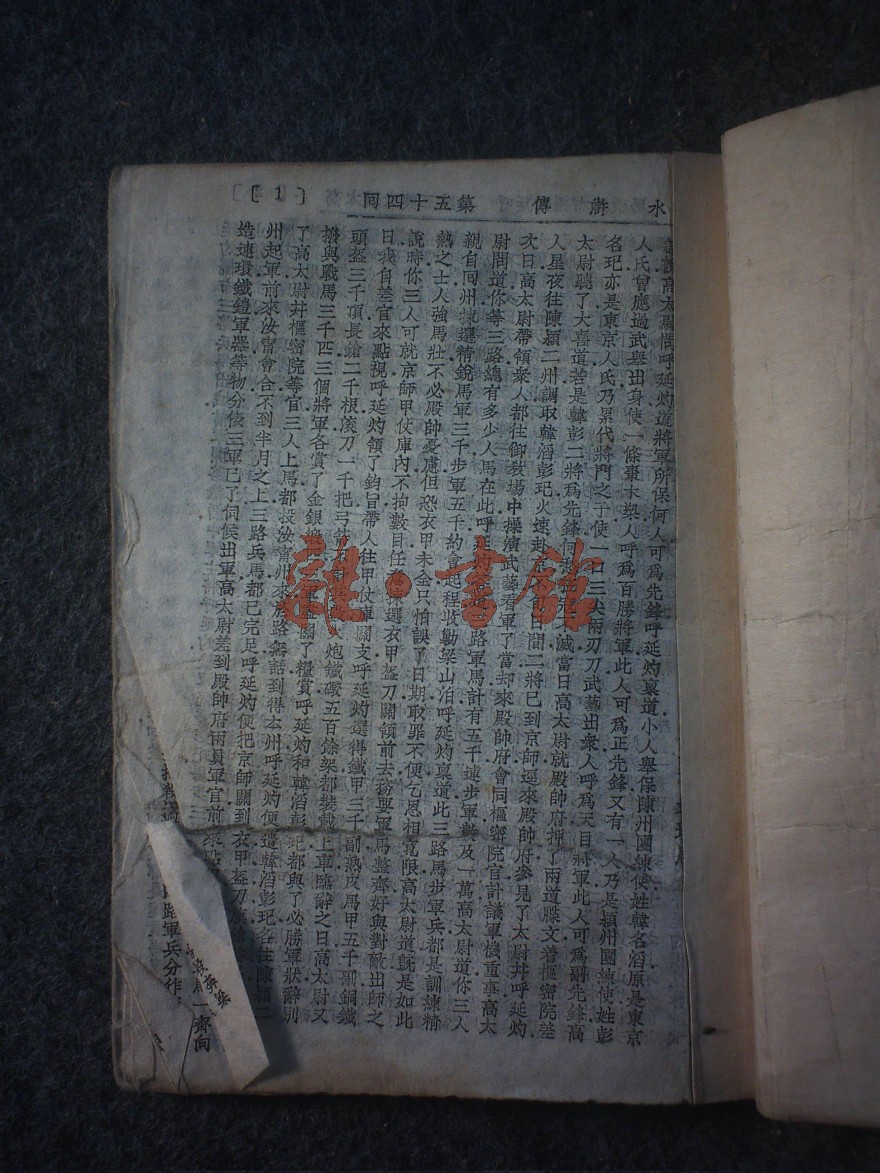 水滸傳 第五十四回 [1]
話說高太尉問呼延灼道將軍所保何人可爲先鋒呼延灼稟道小人舉保陳州團練使姓韓名滔原是東京
人氏曾應過武舉出身使一條棗木槊人呼爲百勝將軍此人可爲正先鋒又有一人乃是潁州團練使姓彭
名玘亦是東京人氏乃累代將門之子使一口三尖兩刃刀武藝出衆人呼爲天目將軍此人可爲副先鋒高
太尉聽了大喜道若是韓彭二將爲先鋒何 滅當日高太尉就殿帥府押了兩道牒文着樞密院差
人星夜往陳潁二州調取韓滔彭玘火速赴京 日間二將已到京師逕來殿帥府參見了太尉幷呼延灼
次日高太尉帶領衆人都往御敎場中操演武藝看軍了當却來殿帥府會同樞密院官計議軍機重事高太
尉問道你等三路總有多少人馬在此呼延灼 三路軍馬計有五千連步軍數及一萬高太尉道你三人
親自回州揀選精銳馬軍三千步軍五千約會起程收勦梁山泊呼延灼稟道此三路馬步軍兵都是訓練精
熟之士人強馬壯不必殿帥憂慮但恐衣甲未全只怕誤了日期取罪不便乞恩相寬限高太尉道旣是如此
說時你三人可就京師甲仗庫內不拘數目任意揀選衣甲盔刀關領前去務要軍馬整齊好與對敵出師之
日我自差官來點視呼延灼領了鈞旨帶人往甲仗庫關支呼延灼選得鐵甲三千副熟皮馬甲五千副銅鐵
頭盔三千頂長鎗二千根滾刀一千把弓箭不計 火炮鐵礮五百餘架都裝載上車臨辭之日高太尉又
撥與戰馬三千匹三個將軍各賞了金銀 關了糧賞呼延灼和韓滔彭玘都與了必勝軍狀辭別
了高太尉幷樞密院等官三人上馬都投汝甯州來於路無話到得本州呼延灼便遣韓滔彭玘各往陳潁二
州起軍前來汝甯會合不到半月之上三路兵馬都已完足呼延灼便把京師關到衣甲盔刀
造連環鐵鎧軍器等物分俵三軍已了伺候出軍高太尉差到殿帥府兩員軍官前來點
路軍兵分作
一齊向